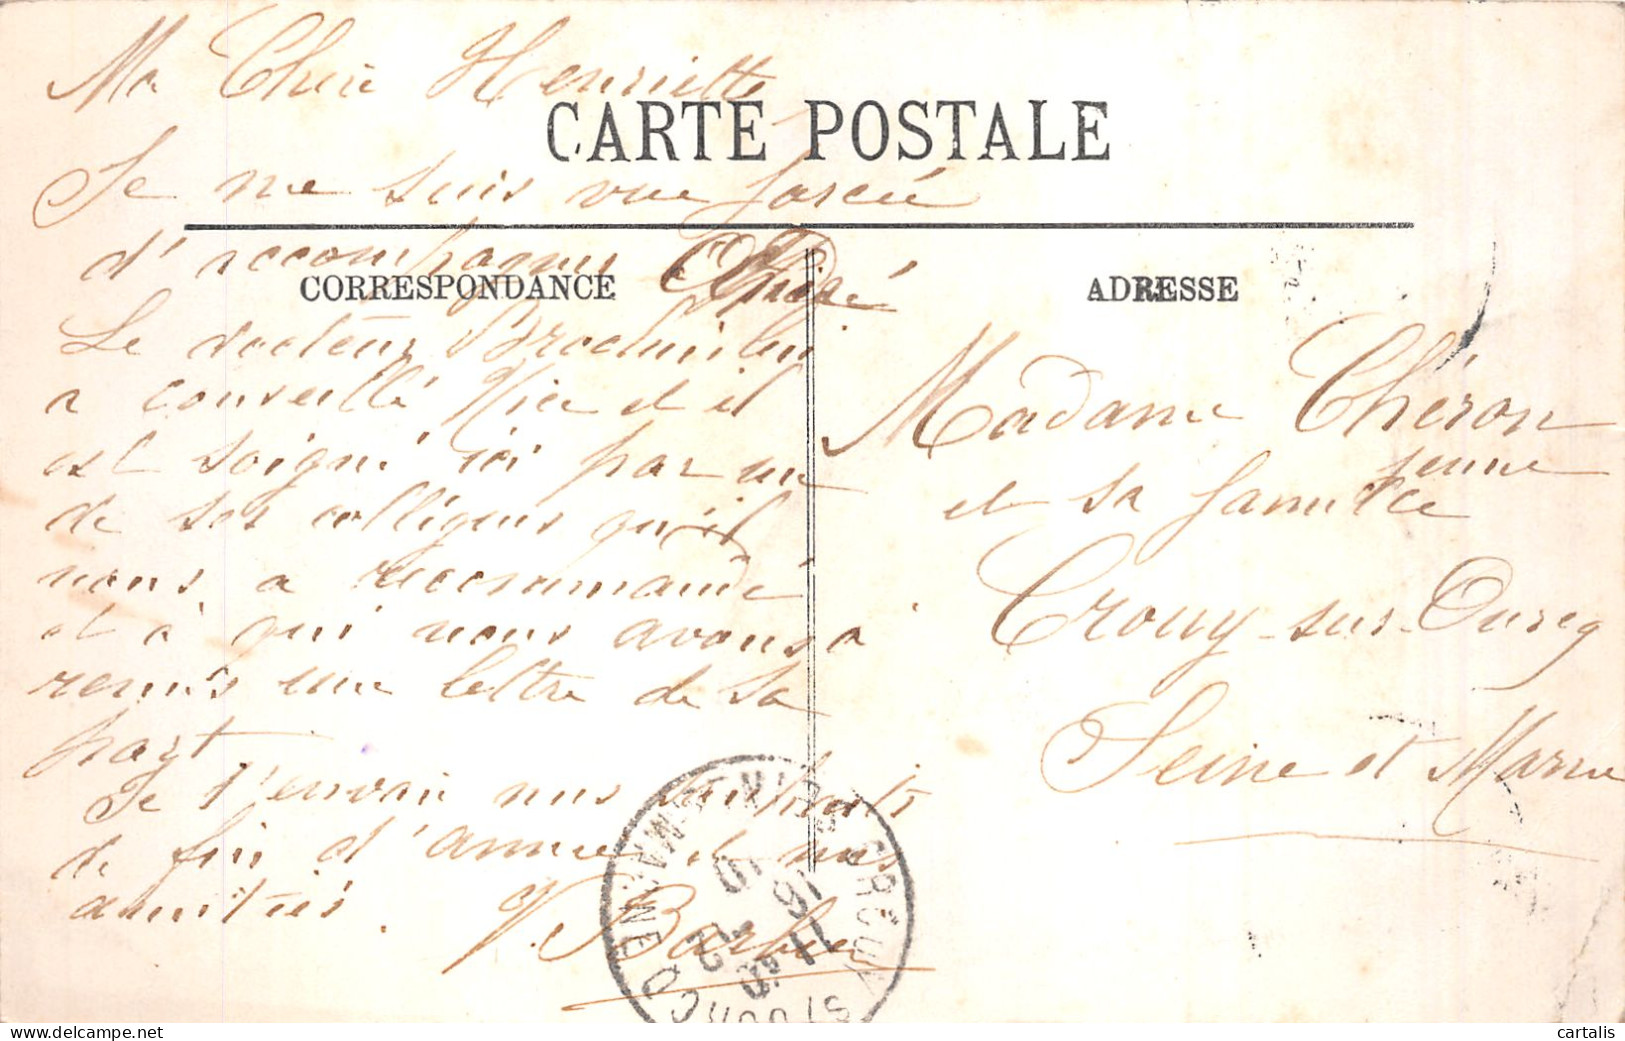 CARTE POSTALE
CORRESPONDANCE
ADRESSE
Ma Chère Henriette
Je me suis vue forcée
d'accompagner
Le docteur
a conseillé Nice et il
est soigné ici par un
de ses collègues qu'il
nous a recommandé
et à qui nous avons
remis une lettre de sa
part
Je t'envoie nos souhaits
de fin d'année et nos
amitiés.
V. Barbier
Madame Chéron
jeune
et sa famille
Crouy-sur-Ourcq
Seine et Marne
CROUY S OURCQ
SEINE ET MARNE
16 12
cartalis